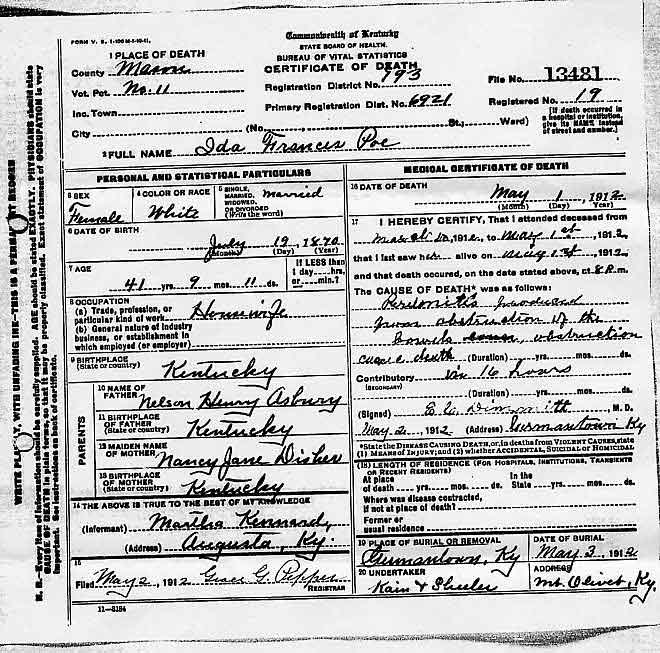 FORM V. S. 1-100M-5-19-11.
Commonwealth of Kentucky
STATE BOARD OF HEALTH.
BUREAU OF VITAL STATISTICS
CERTIFICATE OF DEATH
1 PLACE OF DEATH
County Mason
Vot. Pct. No. 11
Inc. Town
City (No. St.; Ward)
Registration District No. 793
Primary Registration Dist. No. 6921
File No. 13481
Registered No. 19
[If death occurred in a hospital or institution, give its NAME instead of street and number.]
2 FULL NAME Ida Frances Poe
PERSONAL AND STATISTICAL PARTICULARS
3 SEX
Female
4 COLOR OR RACE
White
5 SINGLE, MARRIED, WIDOWED, OR DIVORCED (Write the word)
Married
6 DATE OF BIRTH
July 19, 1870
(Month) (Day) (Year)
7 AGE
41 yrs. 9 mos. 11 ds.
If LESS than 1 day....hrs. or.....min.?
8 OCCUPATION
(a) Trade, profession, or particular kind of work Housewife
(b) General nature of industry business, or establishment in which employed (or employer)
9 BIRTHPLACE
(State or country) Kentucky
PARENTS
10 NAME OF FATHER Nelson Henry Asbury
11 BIRTHPLACE OF FATHER (State or country) Kentucky
12 MAIDEN NAME OF MOTHER Nancy Jane Disher
13 BIRTHPLACE OF MOTHER (State or country) Kentucky
14 THE ABOVE IS TRUE TO THE BEST OF MY KNOWLEDGE
(Informant) Martha Kennard,
(Address) Augusta, Ky.
15
Filed May 2, 1912 Grace G. Pepper
REGISTRAR
11-3184
MEDICAL CERTIFICATE OF DEATH
16 DATE OF DEATH
May 1, 1912
(Month) (Day) (Year)
17 I HEREBY CERTIFY, That I attended deceased from
1912, to May 1st, 1912,
that I last saw her alive on May 1st, 1912,
and that death occurred, on the date stated above, at 8 P.m.
The CAUSE OF DEATH* was as follows:
Peritonitis produced
from obstruction of the
bowels obstruction
cause death (Duration) yrs. mos. ds.
Contributory in 16 hours
(SECONDARY)
(Duration) yrs. mos. ds.
(Signed) M. D.
May 2, 1912 (Address) Germantown Ky
*State the DISEASE CAUSING DEATH, or, in deaths from VIOLENT CAUSES, state (1) MEANS OF INJURY; and (2) whether ACCIDENTAL, SUICIDAL or HOMICIDAL
18 LENGTH OF RESIDENCE (FOR HOSPITALS, INSTITUTIONS, TRANSIENTS OR RECENT RESIDENTS)
At place of death yrs. mos. ds. In the State yrs. mos. ds.
Where was disease contracted, if not at place of death?
Former or usual residence
19 PLACE OF BURIAL OR REMOVAL
Germantown, Ky
DATE OF BURIAL
May 3, 1912
20 UNDERTAKER
Kain &
ADDRESS
Mt. Olivet, Ky.
WRITE PLAINLY, WITH UNFADING INK—THIS IS A PERMANENT RECORD
N. B.—Every item of information should be carefully supplied. AGE should be stated EXACTLY. PHYSICIANS should state CAUSE OF DEATH in plain terms, so that it may be properly classified. Exact statement of OCCUPATION is very important. See instructions on back of certificate.